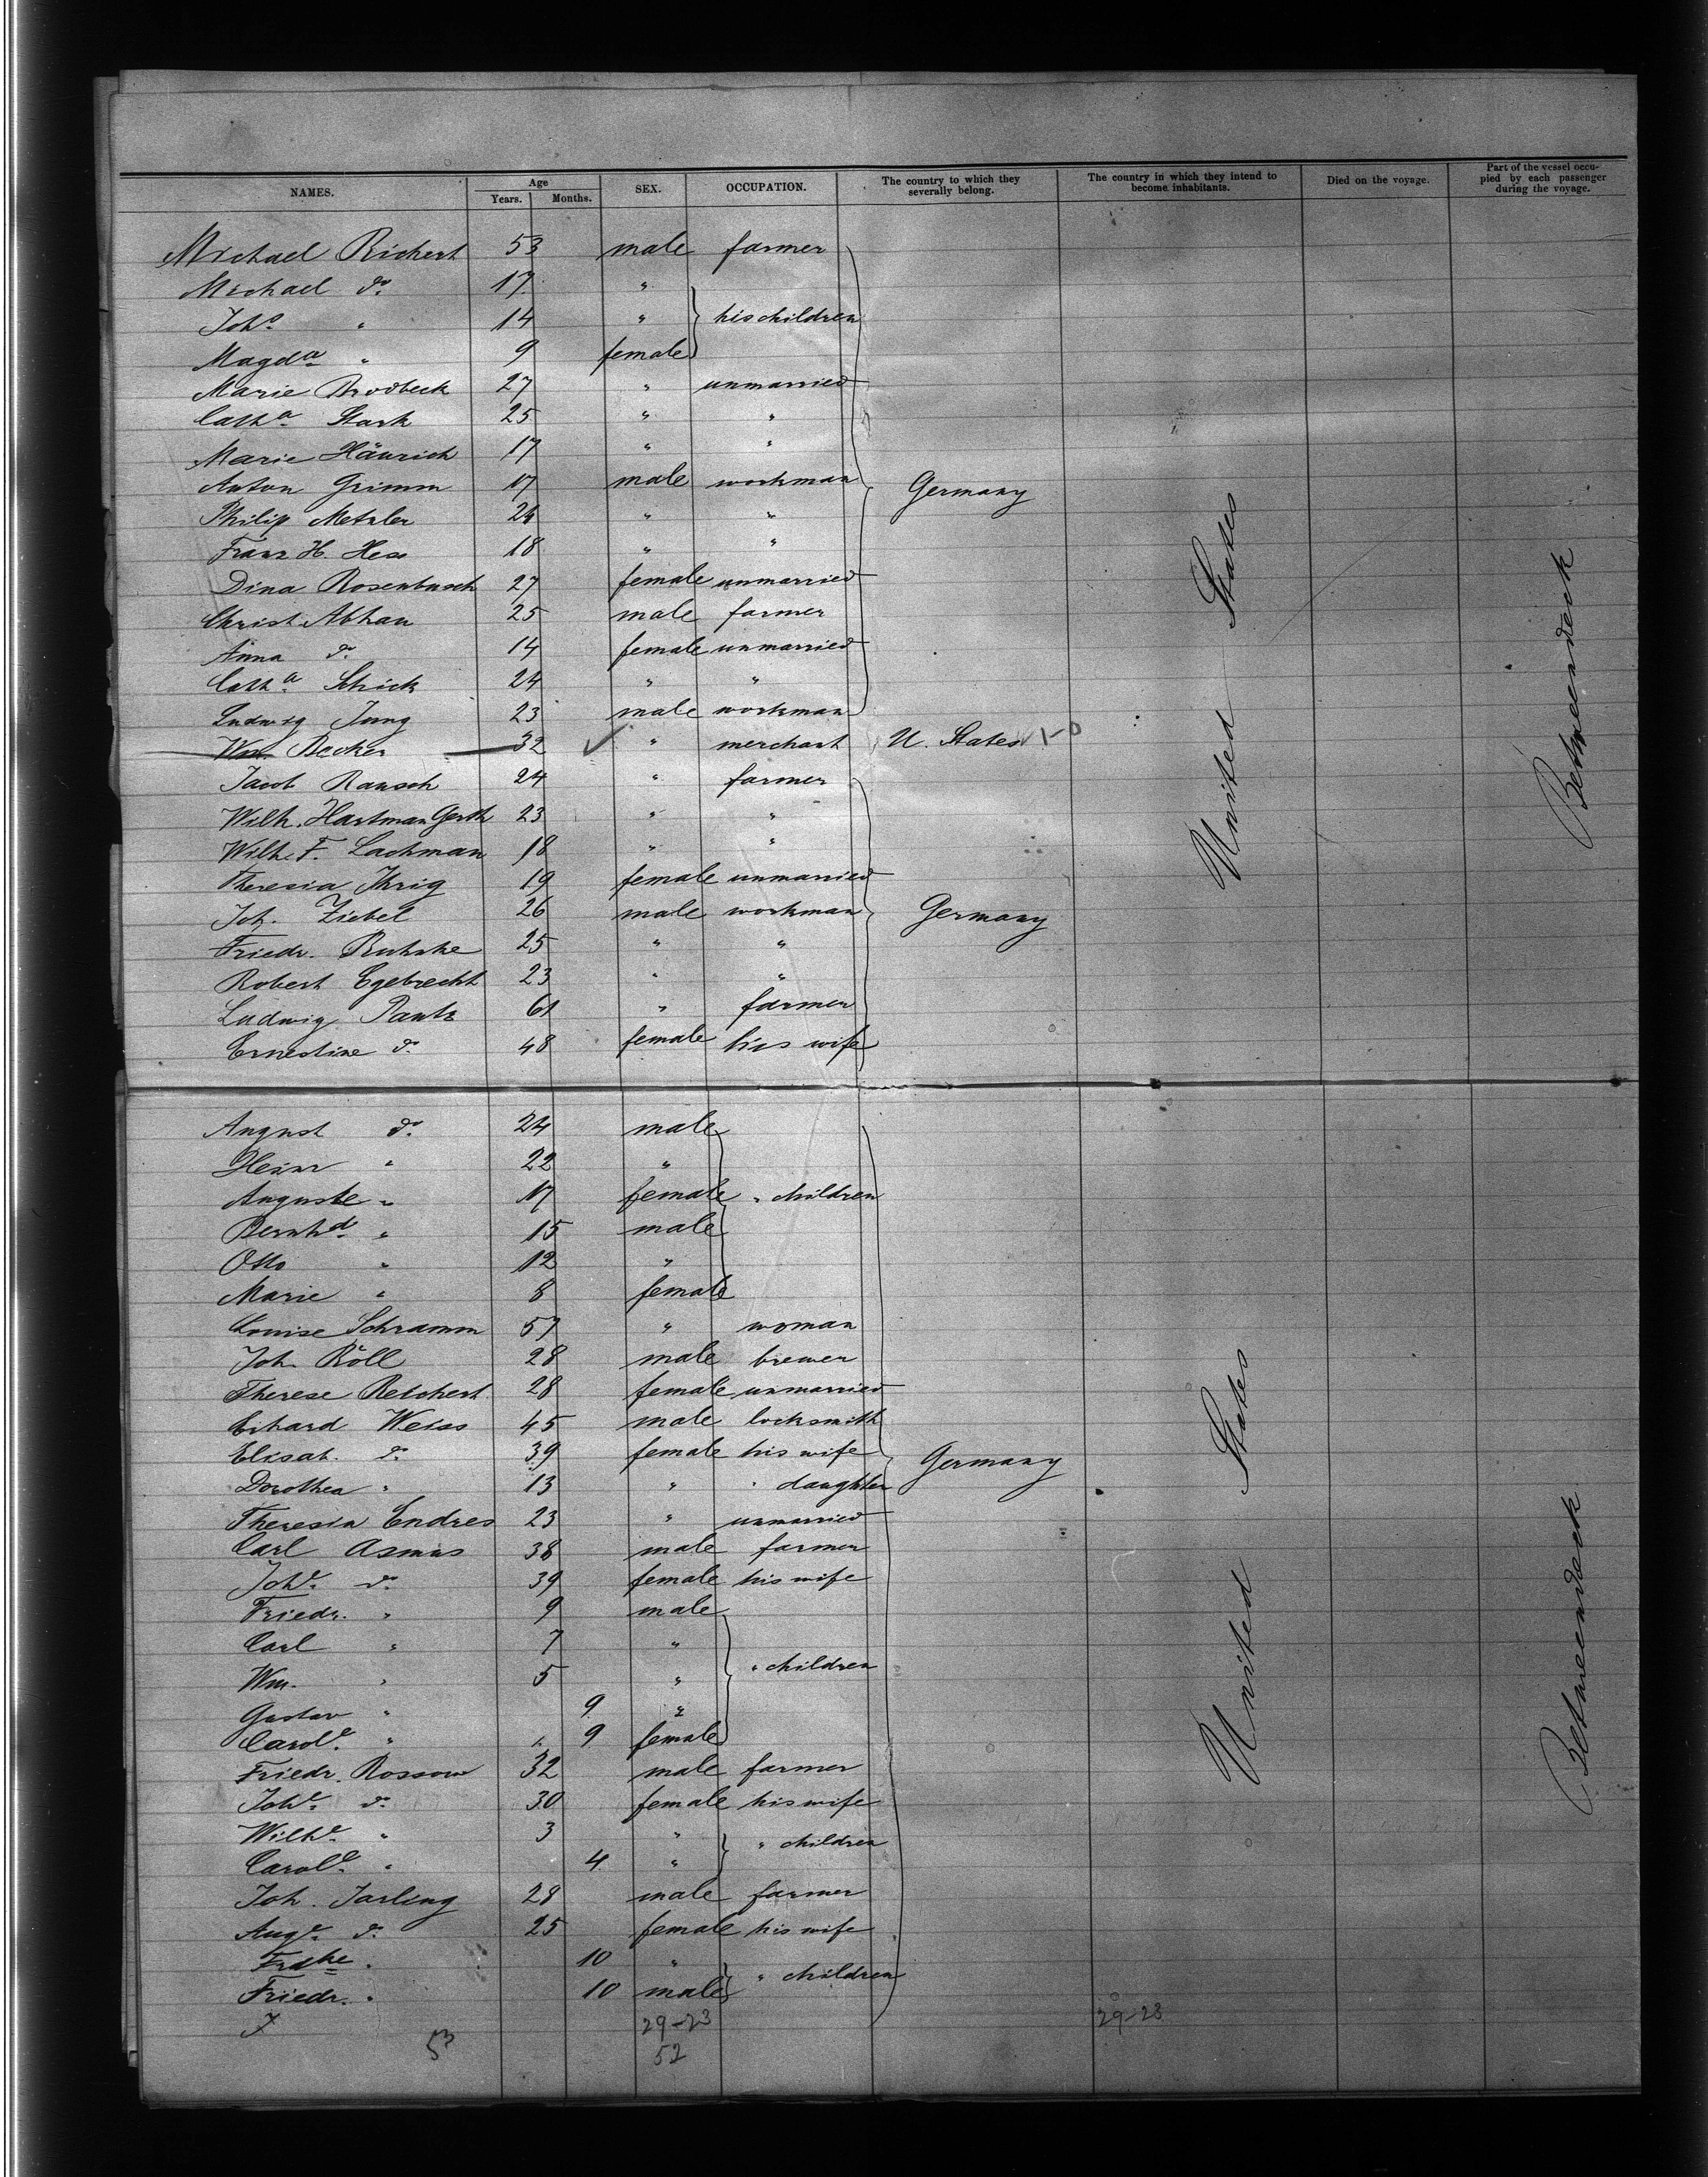 NAMES. Age Years. Months. SEX. OCCUPATION. The country to which they severally belong. The country in which they intend to become inhabitants. Died on the voyage. Part of the vessel occupied by each passenger during the voyage.
Michael Richert 53 male farmer
Michael do 17 "
Joho " 14 " his children
Magda " 9 female
Marie Brodbeck 27 " unmarried
Catha Stark 25 " "
Marie Häurich 17 " "
Anton Grimm 17 male workman Germany
Philip Metzler 24 " "
Franz H. Hess 18 " "
Dina Rosenbusch 27 female unmarried
Christ. Abhau 25 male farmer
Anna do 14 female unmarried
Catha Schick 24 " "
Ludwig Jung 23 male workman
Wm. Becker 32 " merchant U. States 1-0
Jacob Rausch 24 " farmer
Wilh. Hartman Gerth 23 " "
Wilh. F. Lachman 18 " "
Theresia Ihrig 19 female unmarried
Joh. Ziebel 26 male workman Germany
Friedr. Buhske 25 " "
Robert Egebrecht 23 " "
Ludwig Pautz 61 " farmer
Ernestine do 48 female his wife
United States
Betweendeck
August do 24 male
Heinr " 22 "
Auguste " 17 female " children
Bernhd " 15 male
Otto " 12 "
Marie " 8 female
Louise Schramm 57 " woman
Joh. Röll 28 male brewer
Therese Reichert 28 female unmarried
Erhard Weiss 45 male locksmith
Elisab. do 39 female his wife Germany
Dorothea " 13 " " daughter
Theresia Endres 23 " unmarried
Carl Asmus 38 male farmer
Johe do 39 female his wife
Friedr. " 9 male
Carl " 7 "
Wm. " 5 " " children
Gustav " 9 "
Carole " 9 female
Friedr. Rossow 32 male farmer
Johe do 30 female his wife
Wilhe " 3 " " children
Carole " 4 "
Joh. Jarling 28 male farmer
Auge do 25 female his wife
Frdke " 10 " " children
Friedr. " 10 male
United States
Betweendeck
29-23 29-23
53 52